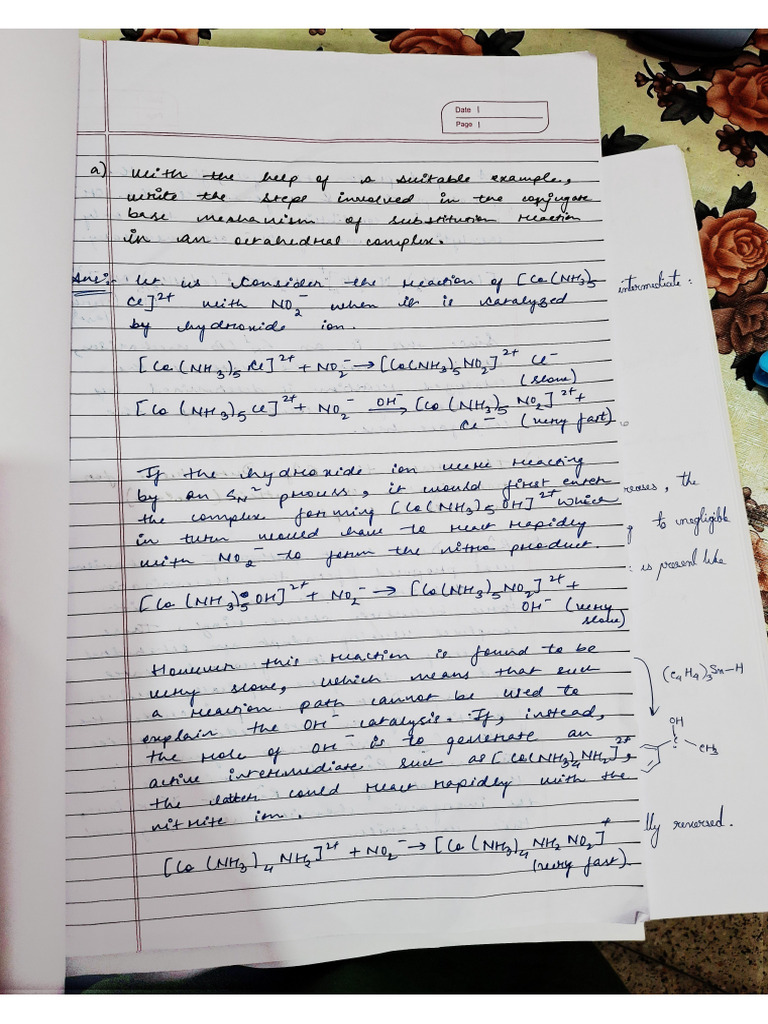 Date
Page
a) with the help of a suitable example,
write the steps involved in the conjugate
base mechanism of substitution reaction
in an octahedral complex.
Ans:- Let us consider the reaction of [Co(NH3)5
Cl]2+ with NO2- when it is catalyzed
by hydroxide ion.
[Co(NH3)5Cl]2+ + NO2- → [Co(NH3)5NO2]2+ Cl-
(slow)
[Co(NH3)5Cl]2+ + NO2- OH-→ [Co(NH3)5NO2]2+ +
Cl- (very fast)
If the hydroxide ion were reacting
by an SN2 process, it would first enter
the complex forming [Co(NH3)5OH]2+ which
in turn would have to react rapidly
with NO2- to form the nitro product.
[Co(NH3)5OH]2+ + NO2- → [Co(NH3)5NO2]2+ +
OH- (very
slow)
However this reaction is found to be
very slow, which means that such
a reaction path cannot be used to
explain the OH- catalysis. If, instead,
the role of OH- is to generate an
active intermediate such as [Co(NH3)4NH2]2+,
the latter could react rapidly with the
nitrite ion.
[Co(NH3)4NH2]2+ + NO2- → [Co(NH3)4NH2NO2]+
(very fast).
intermediate:
reases, the
to negligible
is present like
(C4H9)3Sn-H
OH
C
CH3
lly reversed.